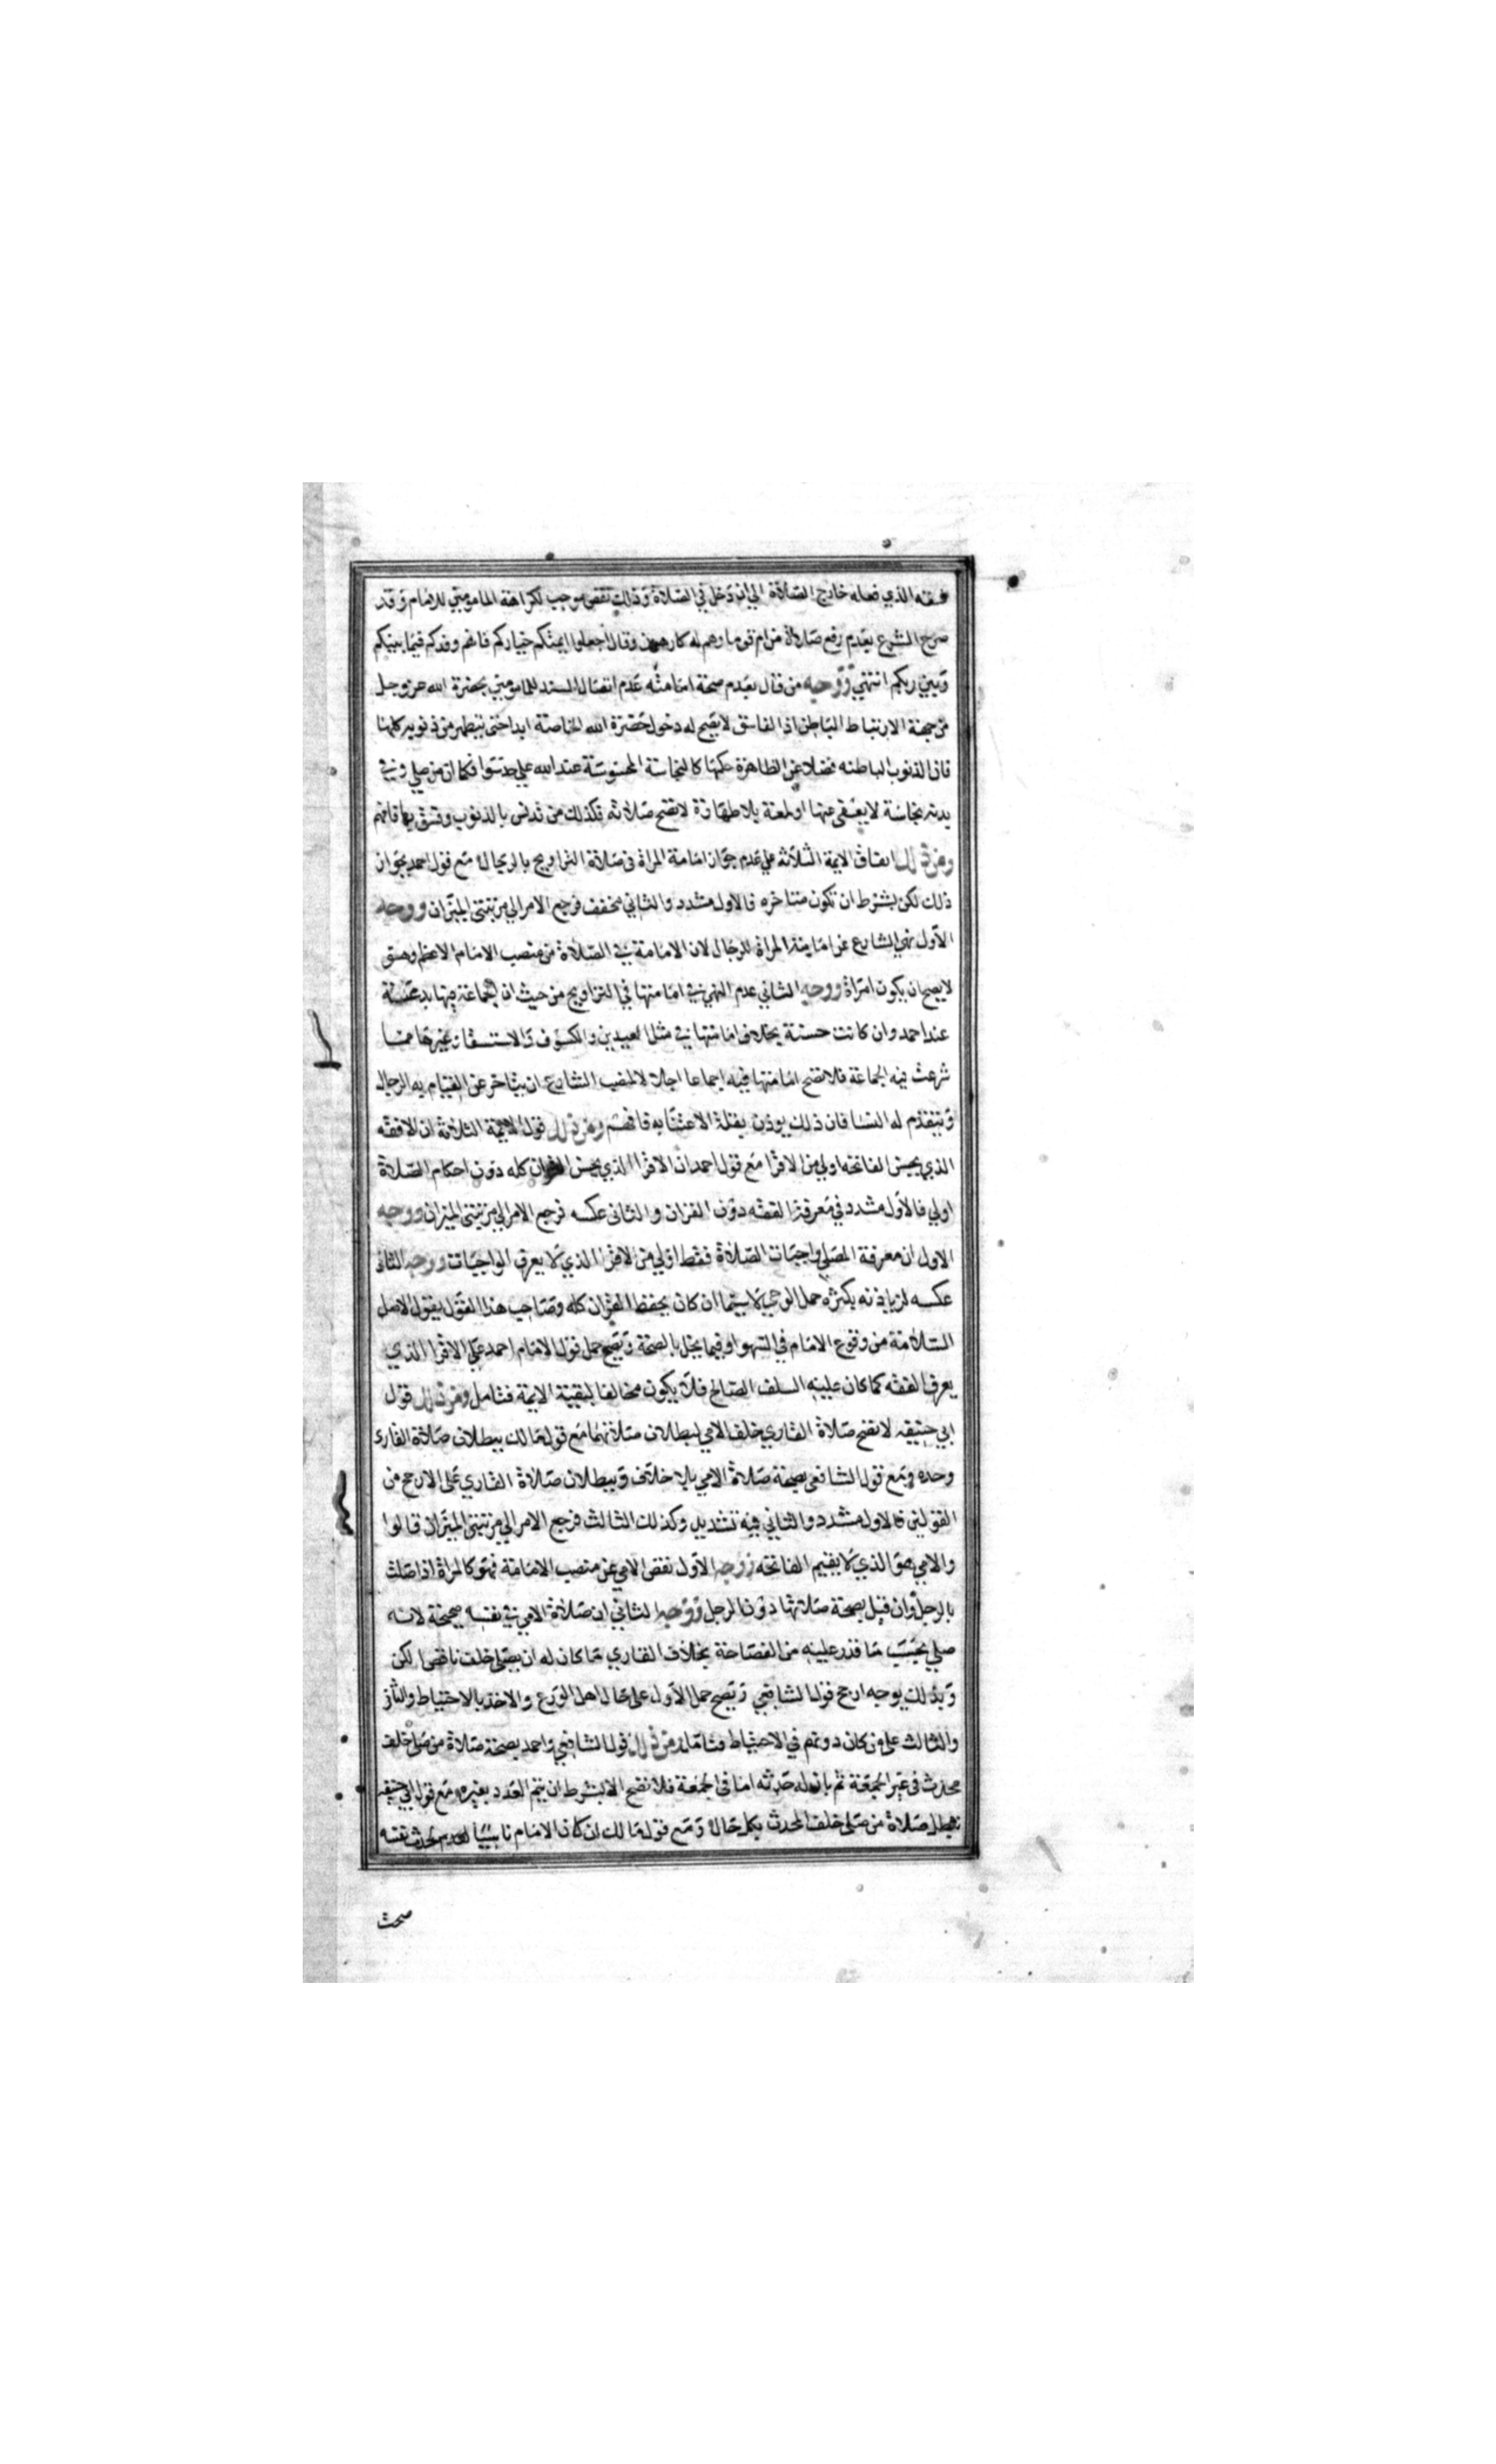 فسقه الذي فعله خارج الصلاة الي ان دخل في الصلاة وذلك نقص موجب لكراهة المامومين للامام وقد
صرح الشرع بعدم رفع صلاة من ام قوما وهم له كارهون وقال اجعلوا ايمتكم خياركم فانهم وفدكم فيما بينكم
وبين ربكم انتهي ووجه من قال بعدم صحة امامته عدم اتصال السند للمامومين بحضرة الله عز وجل
من جهة الارتباط الباطن اذ الفاسق لا يصح له دخول حضرة الله الخاصة ابدا حتي يتطهر من ذنوبه كلها
فان الذنوب الباطنه فضلا عن الظاهرة حكمها كالنجاسة المحسوسة عند الله علي حد سوا فكما ان من صلي وفي
بدنه نجاسة لا يعفي عنها او لمعة بلا طهارة لا تصح صلاته فكذلك من تدنس بالذنوب وفسق بها فافهم
ومن ذلك اتفاق الايمة الثلاثة علي عدم جواز امامة المراة في صلاة التراويح بالرجال مع قول احمد بجواز
ذلك لكن بشرط ان تكون متاخره فالاول مشدد والثاني مخفف فرجع الامر الي مرتبتي الميزان ووجه
الاول نهي الشارع عن امامة المراة للرجال لان الامامة في الصلاة من منصب الامام الاعظم وهو
لا يصح ان يكون امراة ووجه الثاني عدم النهي في امامتها في التراويح من حيث ان الجماعة فيها بدعة
عند احمد وان كانت حسنة بخلاف امامتها في مثل العيدين والكسوف والاستسقا وغيرها مما
شرعت فيه الجماعة فلا تصح امامتها فيه اجماعا اجلالا لمنصب الشارع ان يتاخر عن القيام به الرجال
ويتقدم له النسا فان ذلك يوذن بقلة الاعتنا به فافهم ومن ذلك قول الايمة الثلاثة ان الافقه
الذي يحسن الفاتحه اولي من الاقرا مع قول احمد ان الاقرا الذي يحسن القران كله دون احكام الصلاة
اولي فالاول مشدد في معرفة الفقه دون القران والثاني عكسه فرجع الامر الي مرتبتي الميزان ووجه
الاول ان معرفة المصلي واجبات الصلاة فقط اولي من الاقرا الذي لا يعرف الواجبات ووجه الثاني
عكسه لزيادته بكثرة حمل الوحي لا سيما ان كان يحفظ القران كله وصاحب هذا القول يقول الاصل
السلامة من وقوع الامام في السهو او فيما يخل بالصحة ويصح حمل قول الامام احمد علي الاقرا الذي
يعرف الفقه كما كان عليه السلف الصالح فلا يكون مخالفا لبقية الايمة فتامل ومن ذلك قول
ابي حنيفه لا تصح صلاة القاري خلف الامي لبطلان صلاتهما مع قول مالك ببطلان صلاة القارئ
وحده ومع قول الشافعي بصحة صلاة الامي بلا خلاف وببطلان صلاة القاري علي الارجح من
القولين فالاول مشدد والثاني فيه تشديد وكذلك الثالث فرجع الامر الي مرتبتي الميزان قالوا
والامي هو الذي لا يقيم الفاتحه ووجه الاول نقص الامي عن منصب الامامة فهو كالمراة اذا صلت
بالرجل وان قيل بصحة صلاتها دون الرجل ووجه الثاني ان صلاة الامي في نفسه صحيحة لانه
صلي بحسب ما قدر عليه من الفصاحة بخلاف القاري ما كان له ان يصلي خلف ناقص لكن
وبذلك يوجه ارجح قول الشافعي ويصح حمل الاول علي حال اهل الورع والاخذ بالاحتياط والثاني
والثالث علي من كان دونهم في الاحتياط فتامل ومن ذلك قول الشافعي واحمد بصحة صلاة من صلي خلف
محدث في غير الجمعة ثم بان له حدثه اما في الجمعة فلا تصح الا بشرط ان يتم العدد بغيره مع قول ابي حنيفه
تبطل صلاة من صلي خلف المحدث بكل حال ومع قول مالك ان كان الامام ناسيا لحدث نفسه
صحت